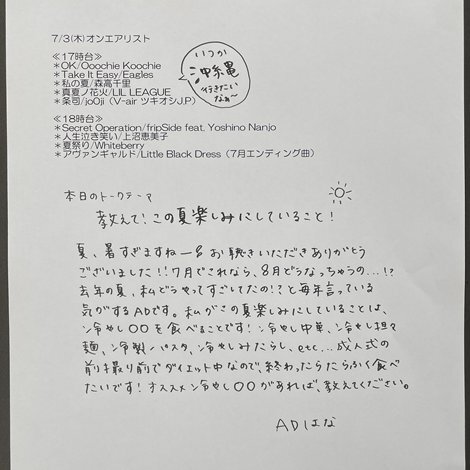 7/3(木)オンエアリスト
≪17時台≫
＊OK/Ooochie Koochie
＊Take It Easy/Eagles
＊私の夏/森高千里
＊真夏ノ花火/LIL LEAGUE
＊条司/joOji（V-air ツキオシJ.P）
いつか
沖縄
行きたい
なぁ〜
≪18時台≫
＊Secret Operation/fripSide feat. Yoshino Nanjo
＊人生泣き笑い/上沼恵美子
＊夏祭り/Whiteberry
＊アヴァンギャルド/Little Black Dress（7月エンディング曲）
本日のトークテーマ
教えて!この夏楽しみにしていること!
夏、暑すぎますねー!お聴きいただきありがとう
ございました!!7月でこれなら、8月どうなっちゃうの…!?
去年の夏、私どうやってすごしてたの!?と毎年言っている
気がするADです。私がこの夏楽しみにしていることは、
冷やし〇〇を食べることです!冷やし中華、冷やし担々
麺、冷製パスタ、冷やしみたらし、etc...成人式の
前撮り前でダイエット中なので、終わったらたらふく食べ
たいです!オススメ冷やし〇〇があれば、教えてください。
ADはな